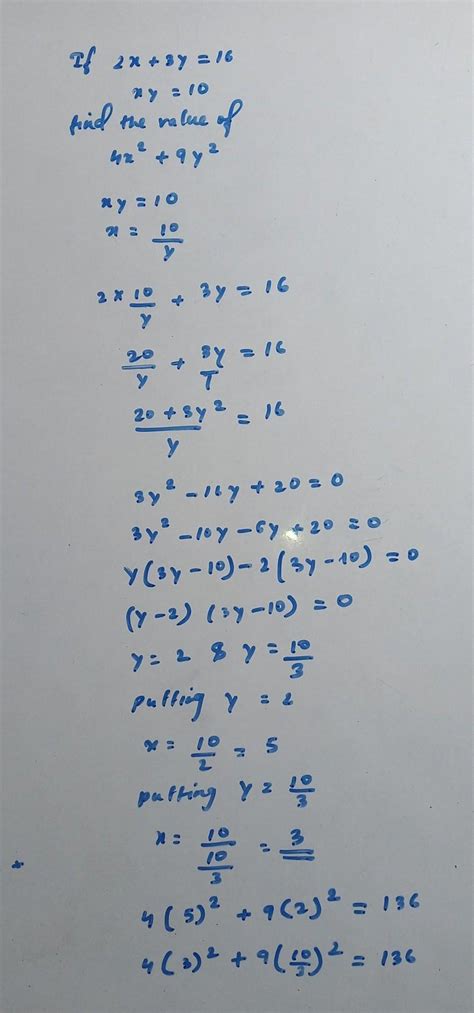 If 2x + 3y = 16
xy = 10
find the value of
4x² + 9y²
xy = 10
x = 10/y
2 × 10/y + 3y = 16
20/y + 3y/1 = 16
20 + 3y²/y = 16
3y² - 16y + 20 = 0
3y² - 10y - 6y + 20 = 0
y(3y - 10) - 2(3y - 10) = 0
(y - 2) (3y - 10) = 0
y = 2 & y = 10/3
putting y = 2
x = 10/2 = 5
putting y = 10/3
x = 10/10/3 = 3
4(5)² + 9(2)² = 136
4(3)² + 9(10/3)² = 136